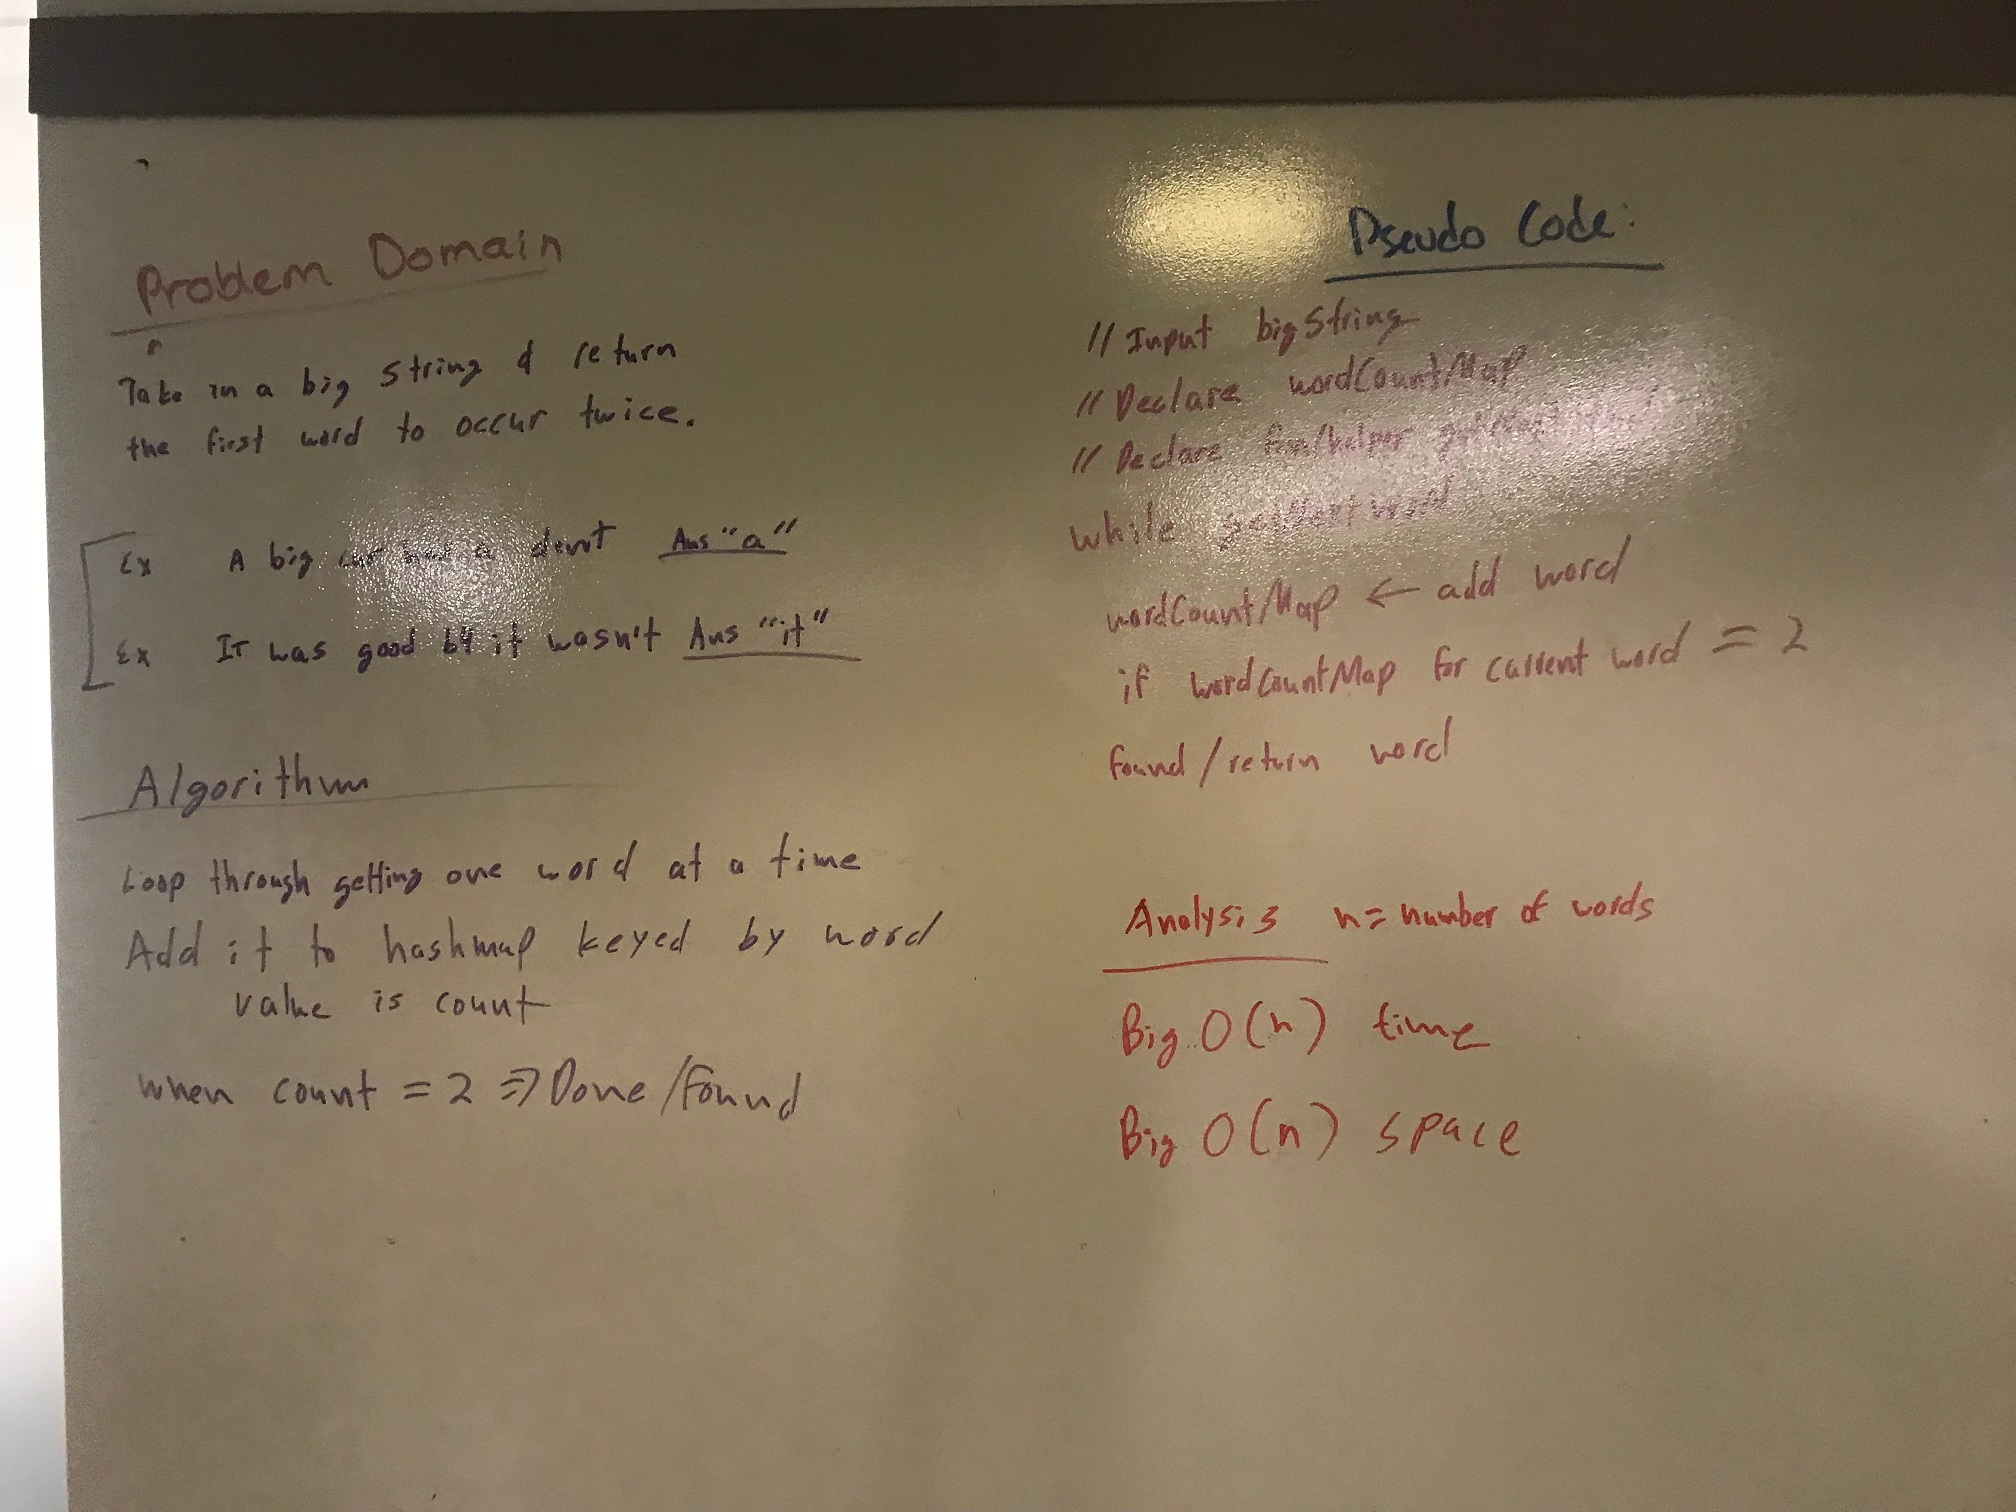 Problem Domain
Take in a big string & return
the first word to occur twice.
Ex A big car has a devot Ans "a"
Ex It was good by it wasn't Ans "it"
Algorithm
Loop through getting one word at a time
Add it to hashmap keyed by word
value is count
when count = 2 => Done/found
Pseudo Code:
// Input bigString
// Declare wordCountMap
// Declare fun/helper
while getNextWord
wordCountMap ← add word
if wordCountMap for current word = 2
found/return word
Analysis n = number of words
Big O(n) time
Big O(n) space